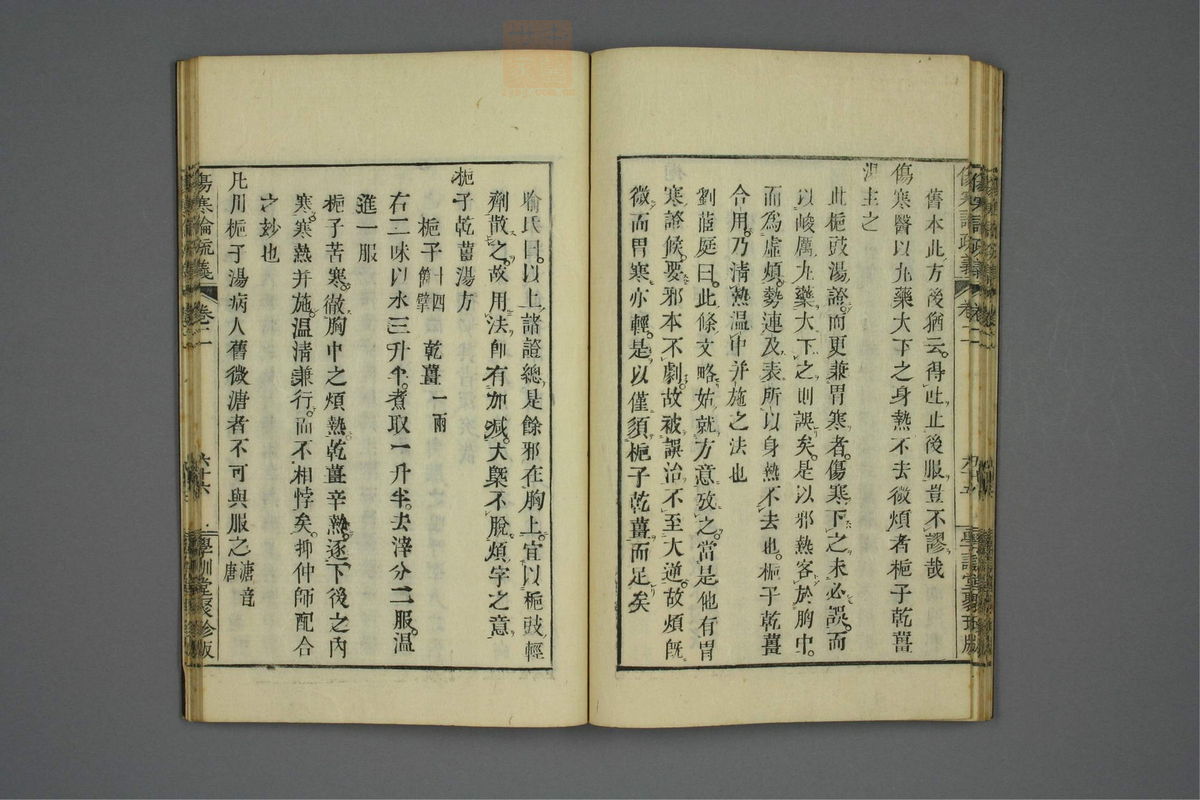 舊本此方後猶云得吐止後服豈不謬哉
傷寒醫以丸藥大下之身熱不去微煩者梔子乾薑
湯主之
此梔豉湯證而更兼胃寒者傷寒下之未必誤而
以峻厲丸藥大下之則誤矣是以邪熱客於胸中
而爲虛煩勢連及表所以身熱不去也梔子乾薑
合用乃清熱溫中并施之法也
劉蓝庭曰此條文略姑就方意攷之當是他有胃
寒證候要邪本不劇故被誤治不至大逆故煩旣
微而胃寒亦輕是以僅須梔子乾薑而足矣
喻氏曰以上諸證總是餘邪在胸上宜以梔豉輕
劑散之故用法卽有加減大槩不脫煩字之意
梔子乾薑湯方
梔子十四箇擘 乾薑一兩
右二味以水三升半煮取一升半去滓分二服溫
進一服
梔子苦寒徹胸中之煩熱乾薑辛熱逐下後之內
寒寒熱并施溫清兼行而不相悖矣抑仲師配合
之妙也
凡用梔子湯病人舊微溏者不可與服之溏音唐
傷寒論疏義 卷二 六十六 學訓堂聚珍版